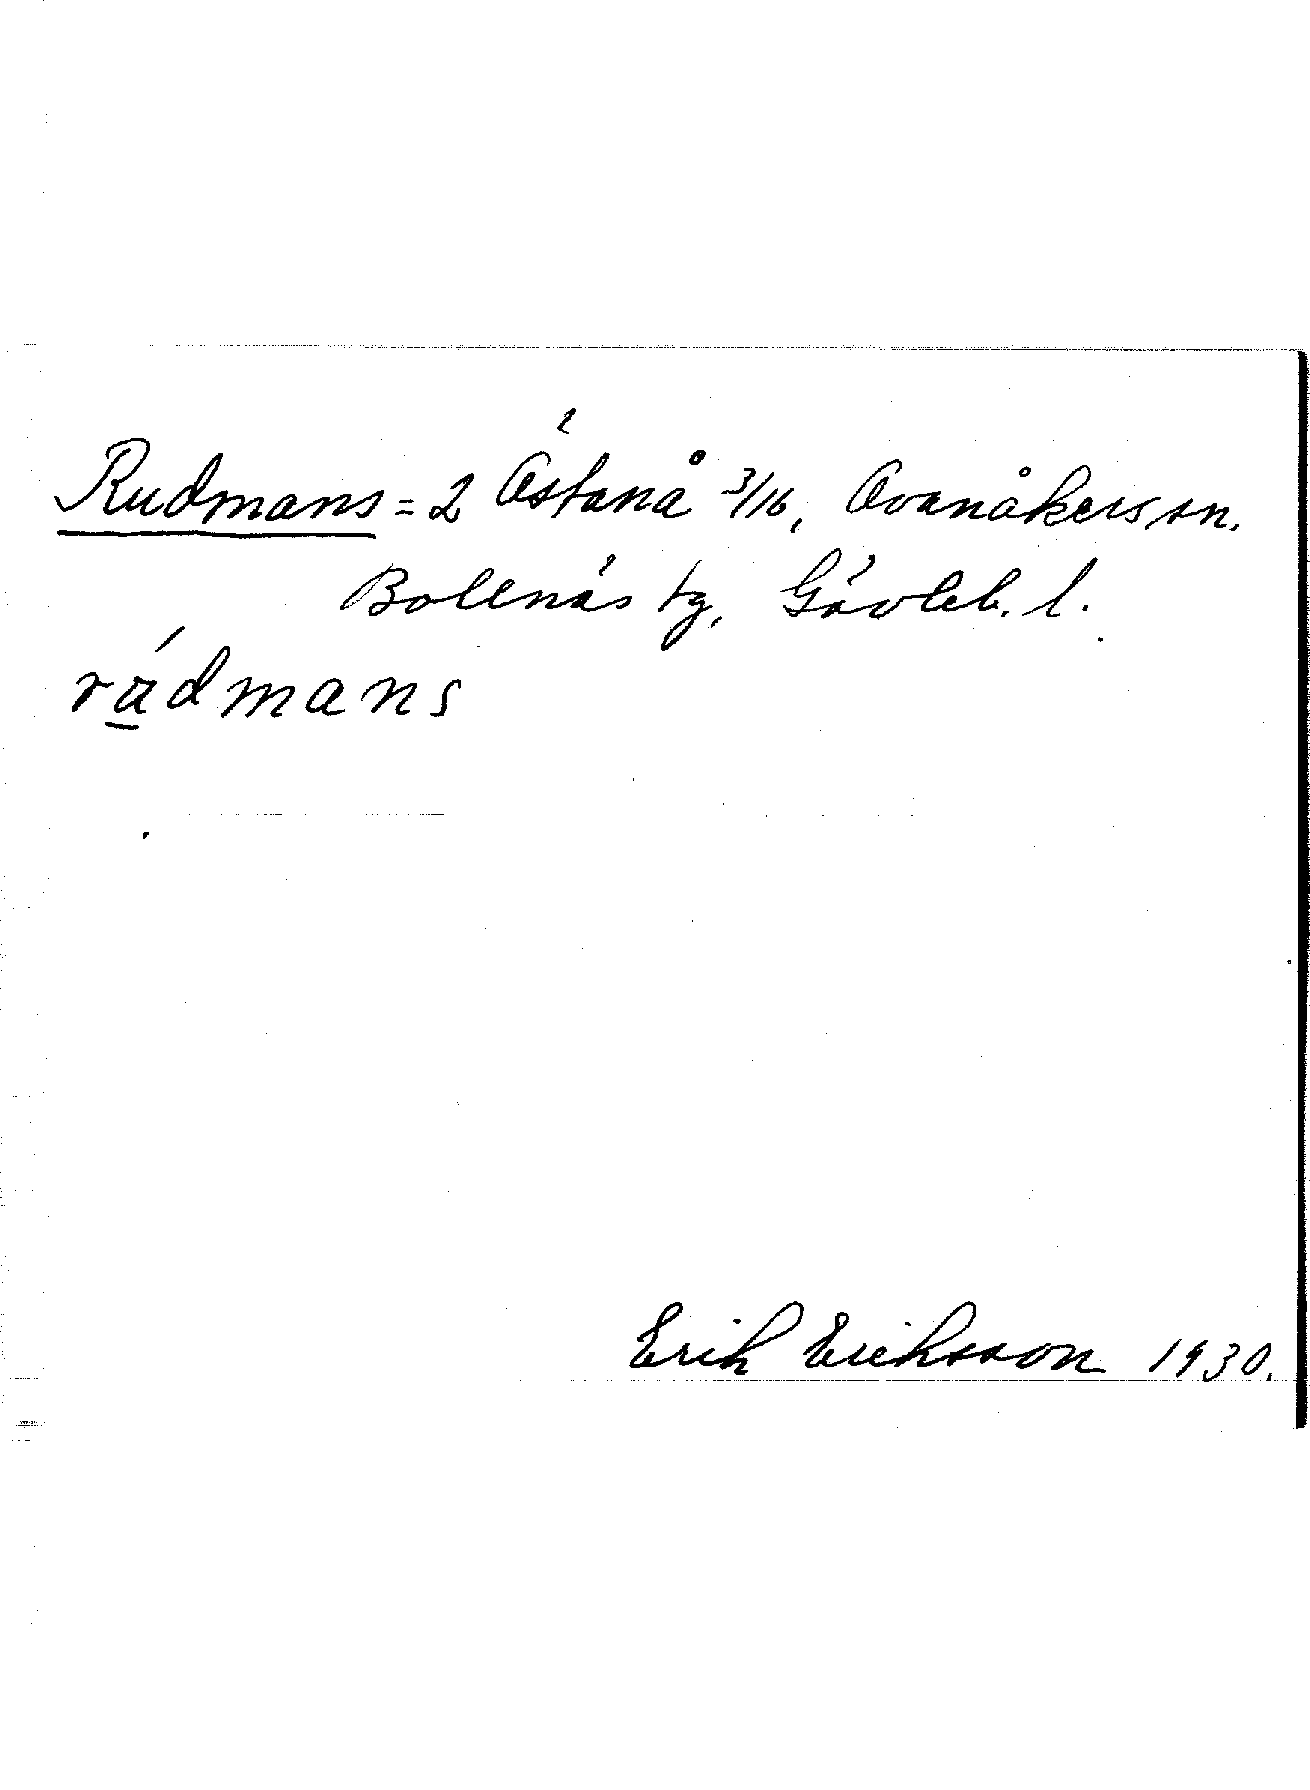 Rudmans = 2 Östanå 3/16, Ovanåkers sn.
Bollnäs tg, Gävleb. l.
rádmans
Erik Eriksson 1930.